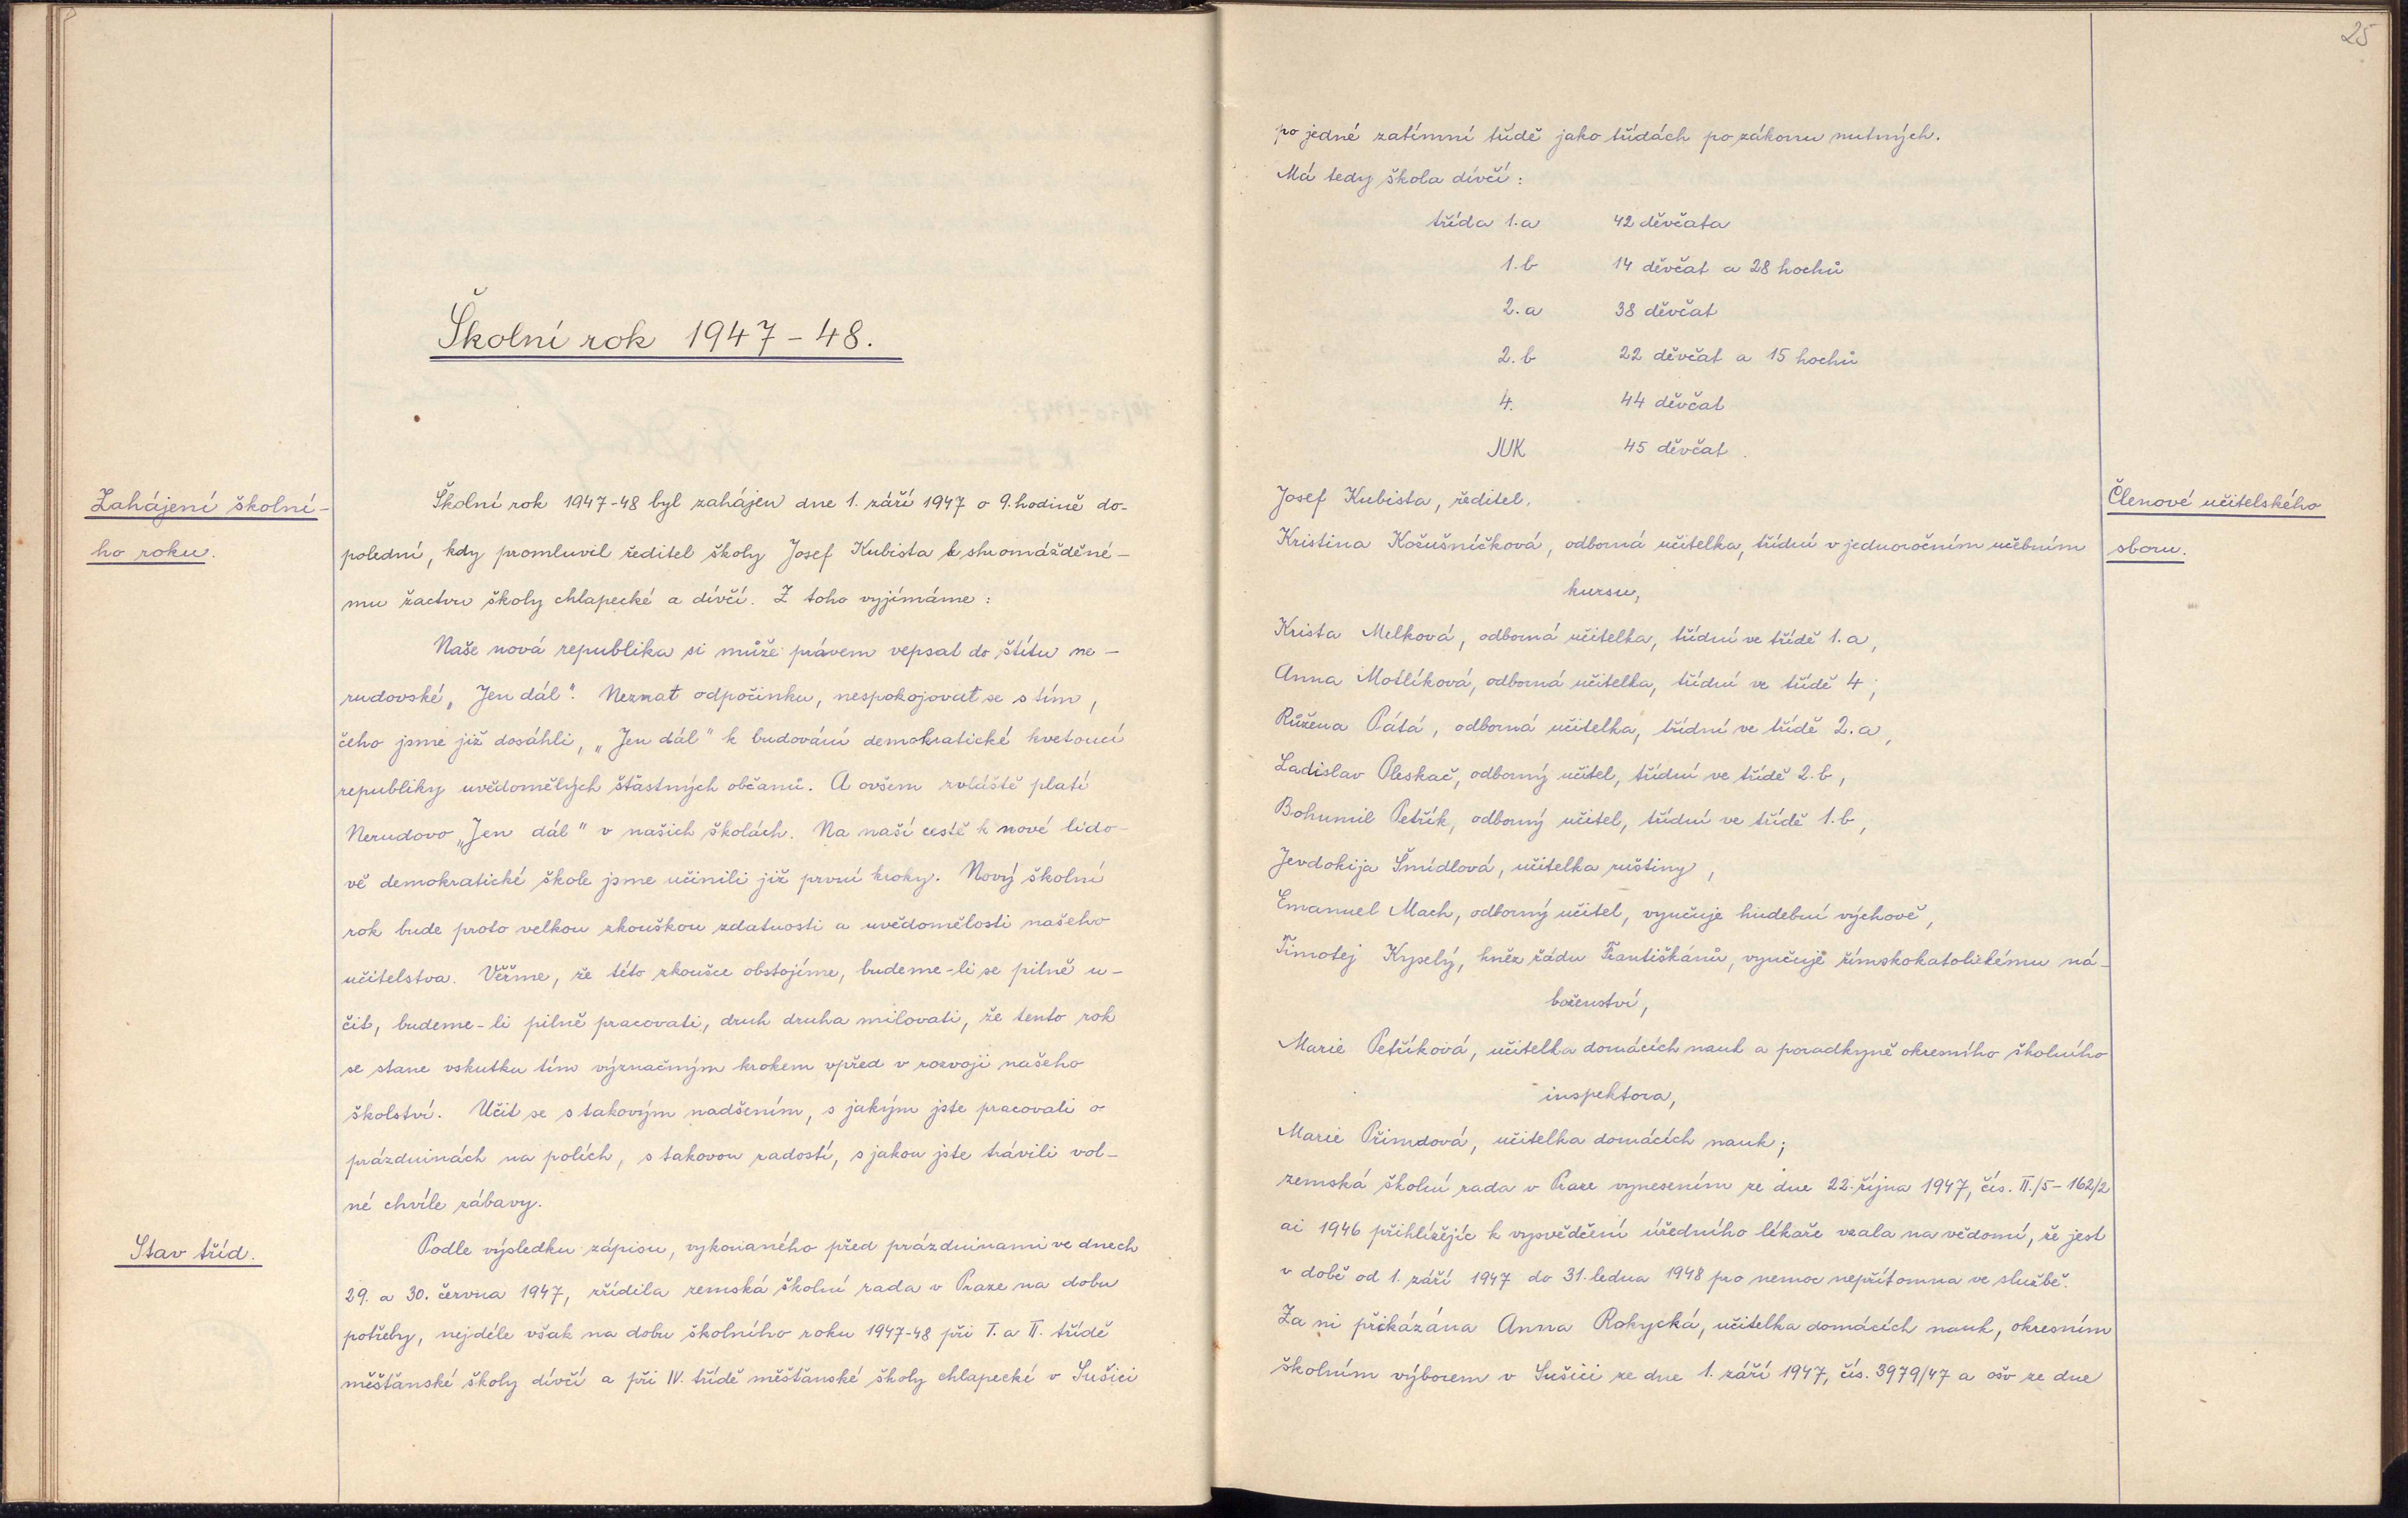 Školní rok 1947-48.
Zahájení školní-
ho roku.
Školní rok 1947-48 byl zahájen dne 1. září 1947 o 9. hodině do-
polední, kdy promluvil ředitel školy Josef Kubista k shromážděné-
mu žactvu školy chlapecké a dívčí. Z toho vyjímáme:
Naše nová republika si může právem vepsat do štítu ne-
rudovské „Jen dál". Neznat odpočinku, nespokojovat se s tím,
čeho jsme již dosáhli, „Jen dál" k budování demokratické kvetoucí
republiky uvědomělých šťastných občanů. A ovšem zvláště platí
Nerudovo „Jen dál" v našich školách. Na naší cestě k nové lido-
vě demokratické škole jsme učinili již první kroky. Nový školní
rok bude proto velkou zkouškou zdatnosti a uvědomělosti našeho
učitelstva. Věřme, že této zkoušce obstojíme, budeme-li se pilně u-
čit, budeme-li pilně pracovati, druh druha milovati, že tento rok
se stane vskutku tím význačným krokem vpřed v rozvoji našeho
školství. Učit se s takovým nadšením, s jakým jste pracovali o
prázdninách na polích, s takovou radostí, s jakou jste trávili vol-
né chvíle zábavy.
Stav tříd.
Podle výsledku zápisu, vykonaného před prázdninami ve dnech
29. a 30. června 1947, zřídila zemská školní rada v Praze na dobu
potřeby, nejdéle však na dobu školního roku 1947-48 při I. a II. třídě
měšťanské školy dívčí a při IV. třídě měšťanské školy chlapecké v Sušici
25
po jedné zatímní třídě jako třídách po zákonu nutných.
Má tedy škola dívčí:
třída 1.a 42 děvčata
1.b 14 děvčat a 28 hochů
2.a 38 děvčat
2.b 22 děvčat a 15 hochů
4. 44 děvčat
JUK 45 děvčat.
Členové učitelského
sboru.
Josef Kubista, ředitel.
Kristina Kožušníčková, odborná učitelka, třídní v jednoročním učebním
kursu,
Krista Melková, odborná učitelka, třídní ve třídě 1.a,
Anna Motlíková, odborná učitelka, třídní ve třídě 4;
Růžena Pátá, odborná učitelka, třídní ve třídě 2.a,
Ladislav Pleskač, odborný učitel, třídní ve třídě 2.b,
Bohumil Petřík, odborný učitel, třídní ve třídě 1.b,
Jevdokija Šmídlová, učitelka ruštiny,
Emanuel Mach, odborný učitel, vyučuje hudební výchově,
Timotej Krpelý, kněz řádu Františkánů, vyučuje římskokatolickému ná-
boženství,
Marie Petříková, učitelka domácích nauk a poradkyně okresního školního
inspektora,
Marie Přimdová, učitelka domácích nauk;
zemská školní rada v Praze vynesením ze dne 22. října 1947, čís. II./5-162/2
ai 1946 přihlížejíc k vysvědčení úředního lékaře vzala na vědomí, že jest
v době od 1. září 1947 do 31. ledna 1948 pro nemoc nepřítomna ve službě.
Za ni přikázána Anna Rokycká, učitelka domácích nauk, okresním
školním výborem v Sušici ze dne 1. září 1947, čís. 3979/47 a ošv ze dne